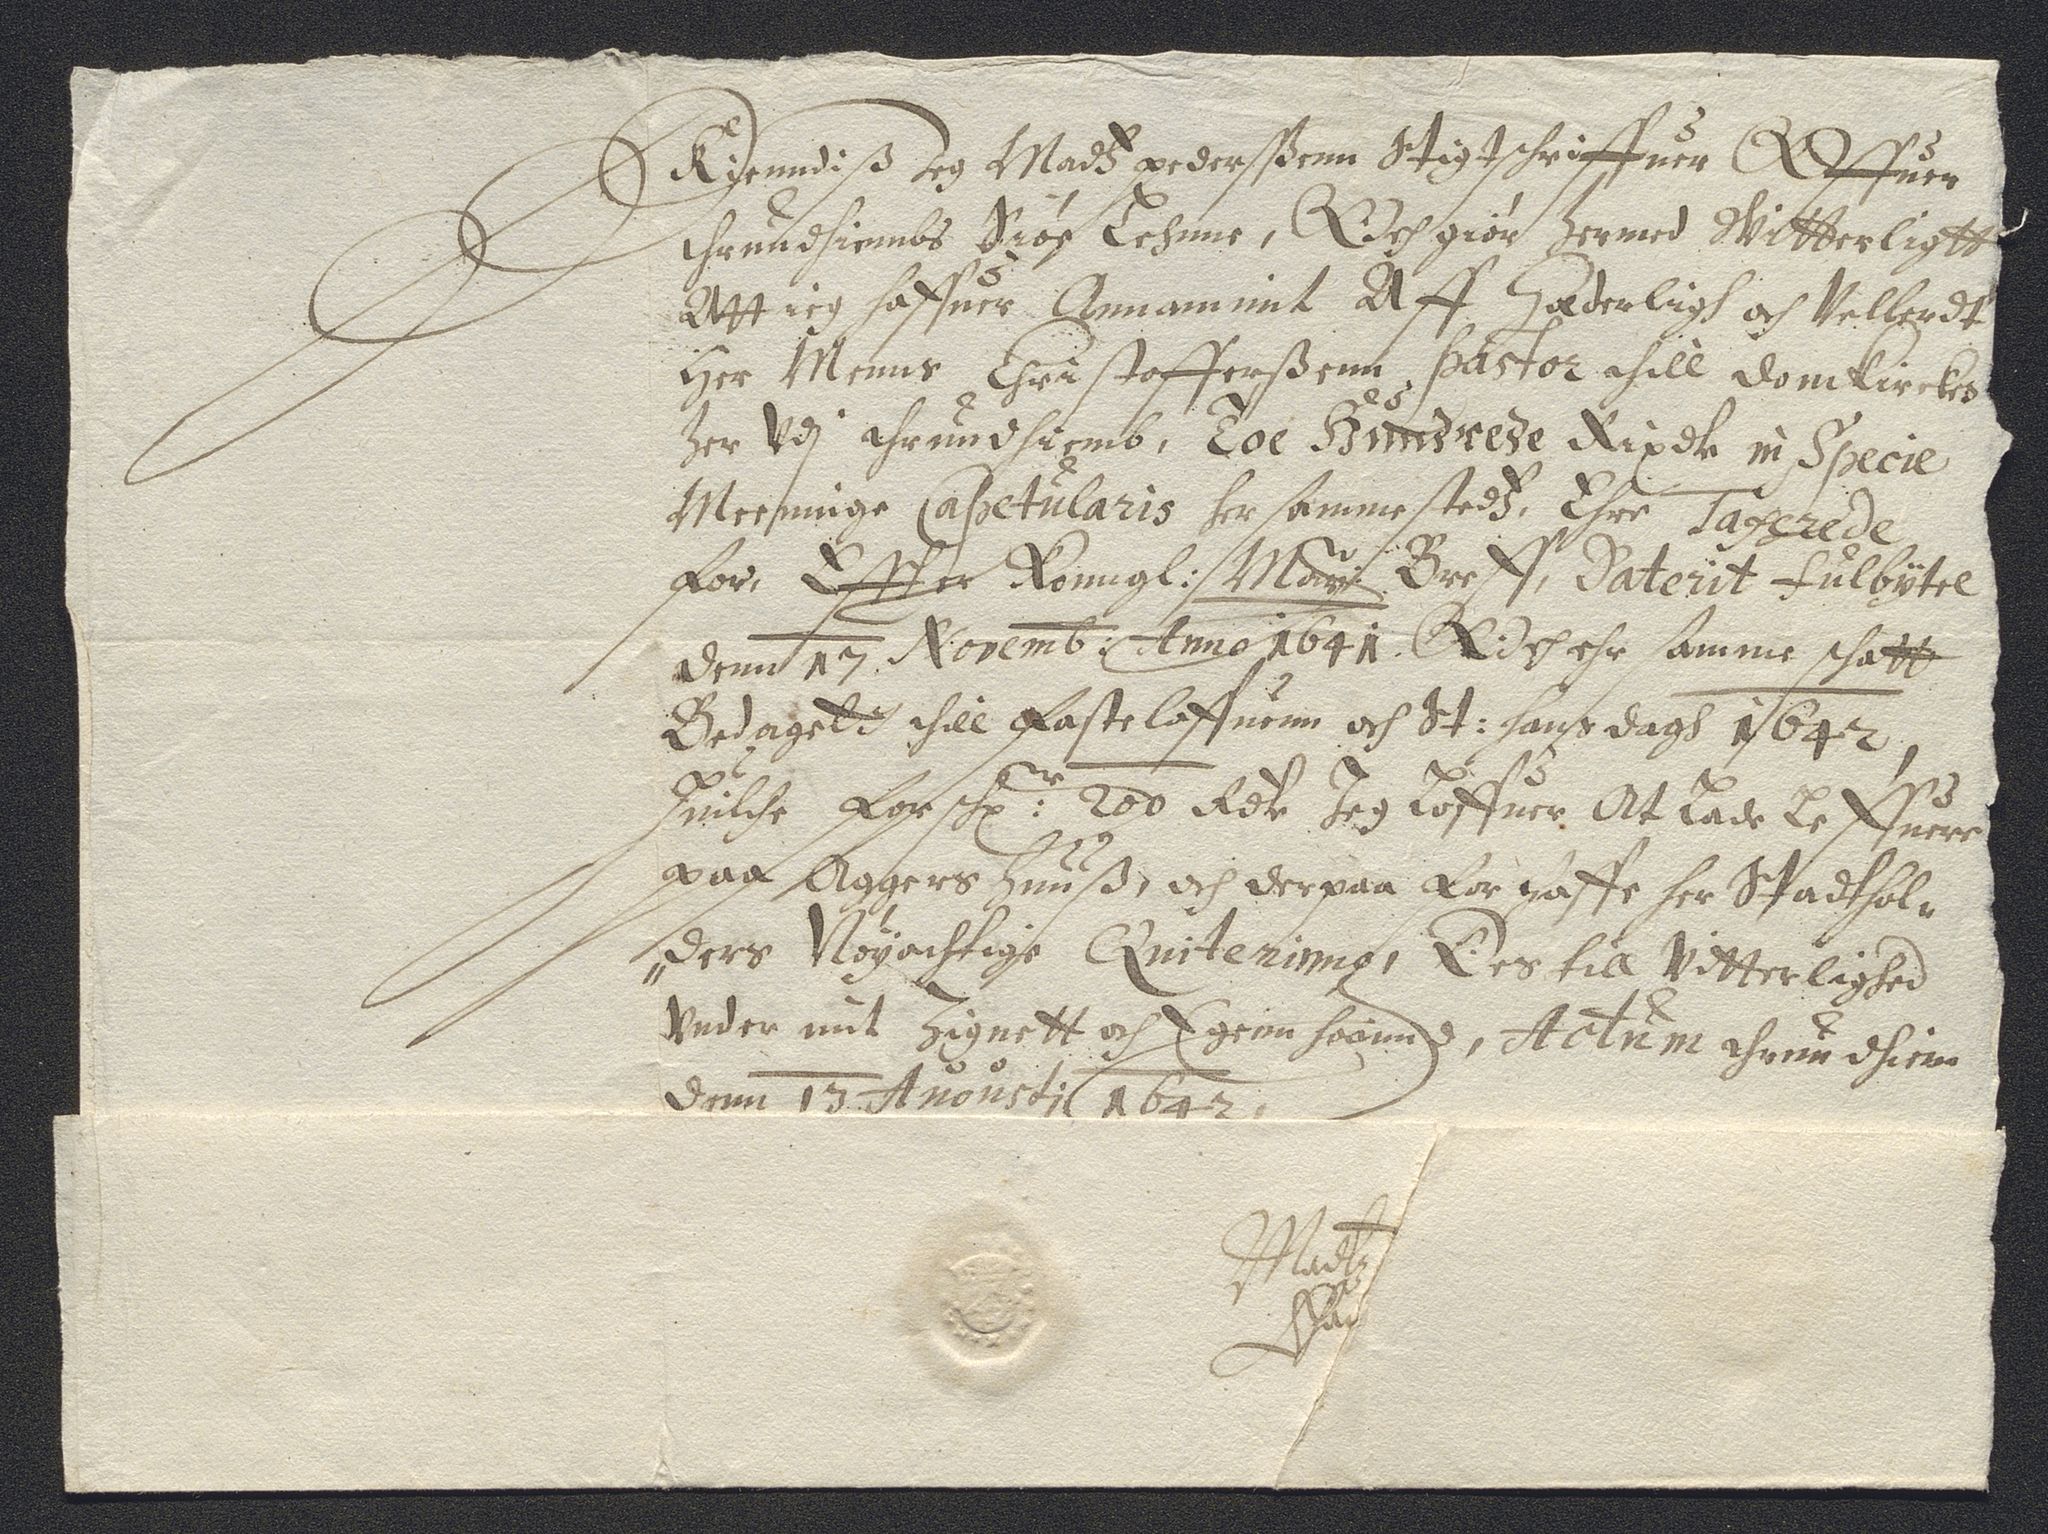 Kiendiß Jeg Madz pederßenn Stigtschriffuer Offuer
thrundhiembs Siøe Lehnne, Och giør hermed Witterligtt
Att ieg haffuer Annammit Aff Hæderligh och Vellerdt
Her Menns Christofferßenn Pastor thill domkircken
her vdj thrundhiemb, Toe Hundrede Rixdlr in Specie
Meenige Capetularis her sammestedz, Ehre Taxerede
for, Effter Konngl: May: Breff, Daterit fulbytel
denn 17 Novemb: Anno 1641. Och ehr samme schatt
Bedagett thill fasteloffuenn och St: hans dagh 1642,
huilche forschr: 200 Rdlr Jeg Loffuer At Lade Leffuere
paa Aggershuuß, och derpaa forschaffe her Stadthol-
"ders Nøyachtige Quitering, Des till Vitterlighed
Vnder mit Zignett och Egenn haannd, Actum thrundhiem
denn 13 Augustj 1642.
Madtz